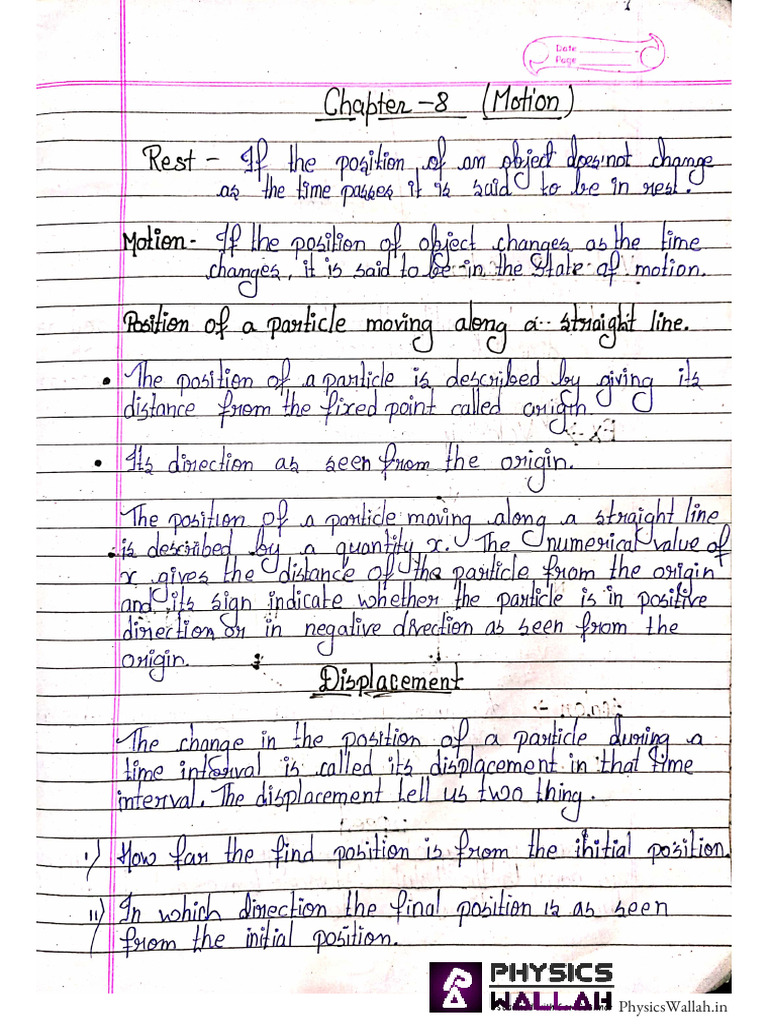 Date
Page
Chapter -8 (Motion)
Rest - If the position of an object does not change
as the time passes it is said to be in rest.
Motion - If the position of object changes as the time
changes, it is said to be in the state of motion.
Position of a particle moving along a straight line.
• The position of a particle is described by giving its
distance from the fixed point called origin
• Its direction as seen from the origin.
The position of a particle moving along a straight line
• is described by a quantity x. The numerical value of
x gives the distance of the particle from the origin
and its sign indicate whether the particle is in positive
direction or in negative direction as seen from the
origin.
Displacement
The change in the position of a particle during a
time interval is called its displacement in that time
interval. The displacement tell us two thing.
i) How far the find position is from the initial position.
ii) In which direction the final position is as seen
from the initial position.
PHYSICS
WALLAH
PhysicsWallah.in